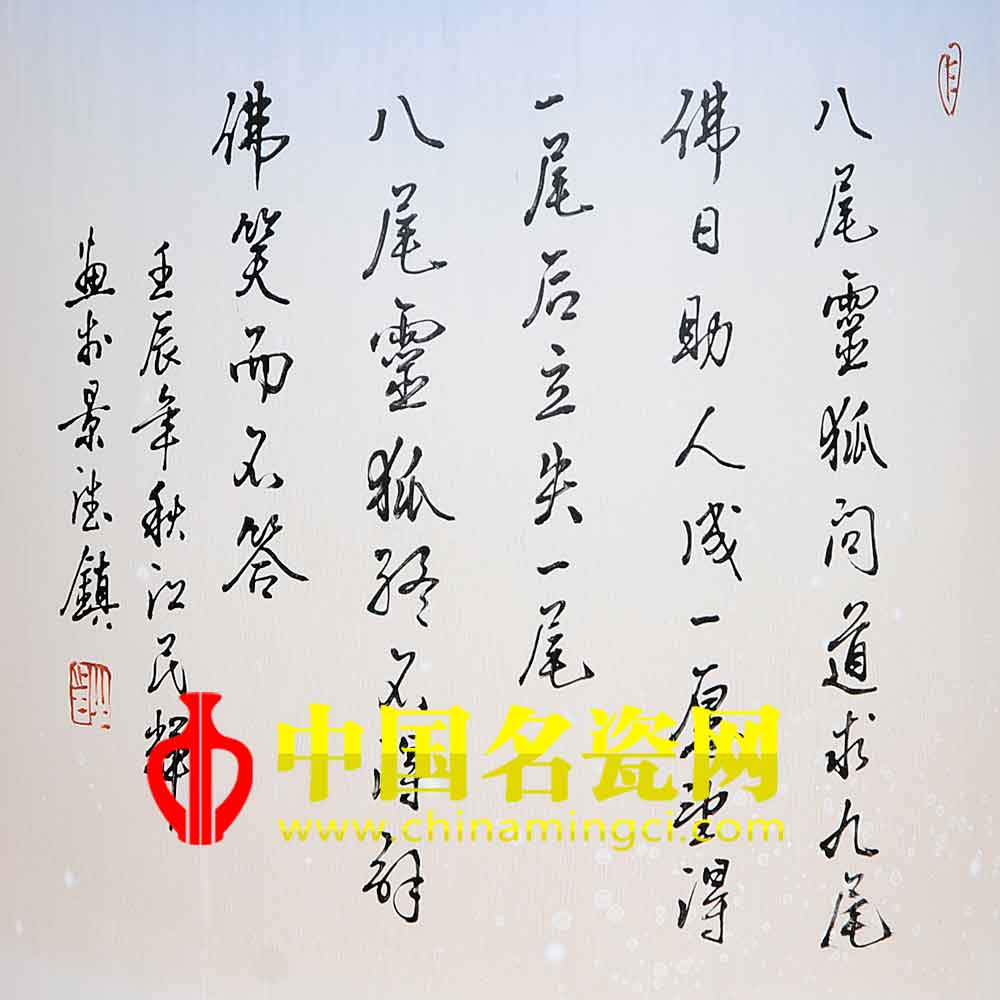 八尾靈狐问道求九尾
佛曰助人成一愿望得
一尾后立失一尾
八尾靈狐终不得解
佛笑而不答
壬辰年秋江民辉
画于景德鎮
中国名瓷网
www.chinamingci.com